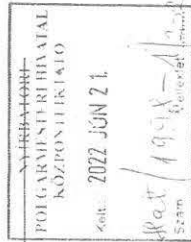 NYÍRBÁTORI
POLGÁRMESTERI HIVATAL
KÖZPONTI IKTATÓ
Kelt: 2022 JUN 21.
/1998-1/
Szám